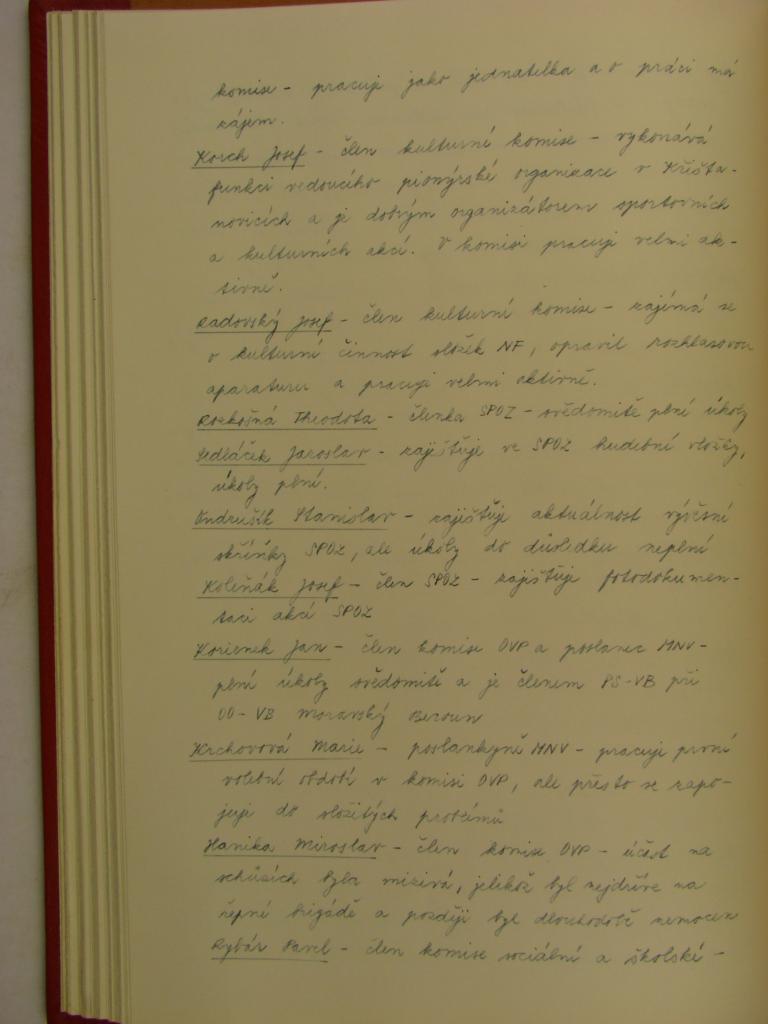 komise - pracuje jako jednatelka a o práci má
zájem.
Korch Josef - člen kulturní komise - vykonává
funkci vedoucího pionýrské organizace v Křišťa-
novicích a je dobrým organizátorem sportovních
a kulturních akcí. V komisi pracuje velmi ak-
tivně.
Radovský Josef - člen kulturní komise - zajímá se
o kulturní činnost složek NF, opravil rozhlasovou
aparaturu a pracuje velmi aktivně.
Rozkošná Theodota - členka SPOZ - svědomitě plní úkoly
Sedláček Jaroslav - zajišťuje ve SPOZ hudební vložky,
úkoly plní.
Ondrušík Stanislav - zajišťuje aktuálnost vývěsní
skříňky SPOZ, ale úkoly do důsledku neplní
Koleňák Josef - člen SPOZ - zajišťuje fotodokumen-
taci akcí SPOZ
Korienek Jan - člen komise OVP a poslanec MNV -
plní úkoly svědomitě a je členem PS-VB při
OO-VB Moravský Beroun
Krchovová Marie - poslankyně MNV - pracuje první
volební období v komisi OVP, ale přesto se zapo-
juje do složitých problémů
Hanika Miroslav - člen komise OVP - účast na
schůzích byla mizivá, jelikož byl nejdříve na
řepné brigádě a později byl dlouhodobě nemocen
Rybár Pavel - člen komise sociální a školské -